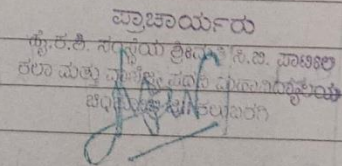 ಪ್ರಾಚಾರ್ಯರು
ಹೈ.ಕ.ಶಿ. ಸಂಸ್ಥೆಯ ಶ್ರೀಮತಿ ಸಿ.ಬಿ. ಪಾಟೀಲ
ಕಲಾ ಮತ್ತು ವಾಣಿಜ್ಯ ಪದವಿ ಮಹಾವಿದ್ಯಾಲಯ
ಕಲಬುರಗಿ